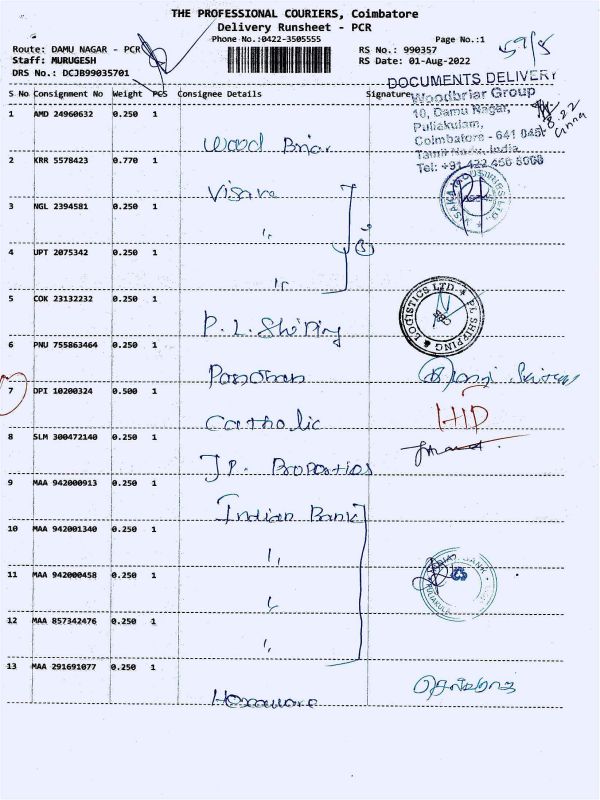 THE PROFESSIONAL COURIERS, Coimbatore
Delivery Runsheet - PCR
Phone No.:0422-3505555
Page No.:1
Route: DAMU NAGAR - PCR
RS No.: 990357
Staff: MURUGESH
RS Date: 01-Aug-2022
DRS No.: DCJB99035701
DOCUMENTS DELIVERY
S No Consignment No Weight PCS Consignee Details Signature
Woodbriar Group
10, Damu Nagar,
Puliakulam,
Coimbatore - 641 045
Tamil Nadu, India
Tel: +91 422 456 5000
1 AMD 24960632 0.250 1
Wood Briar
2 KRR 5578423 0.770 1
Visaka
3 NGL 2394581 0.250 1
"
4 UPT 2075342 0.250 1
"
5 COK 23132232 0.250 1
P. L. Shiping
PL SHIPPING & LOGISTICS LTD
6 PNU 755863464 0.250 1
7 DPI 10200324 0.500 1
Catholic
HD
8 SLM 300472140 0.250 1
J.P. Properties
9 MAA 942000913 0.250 1
Indian Bank
10 MAA 942001340 0.250 1
"
11 MAA 942000458 0.250 1
"
12 MAA 857342476 0.250 1
"
13 MAA 291691077 0.250 1